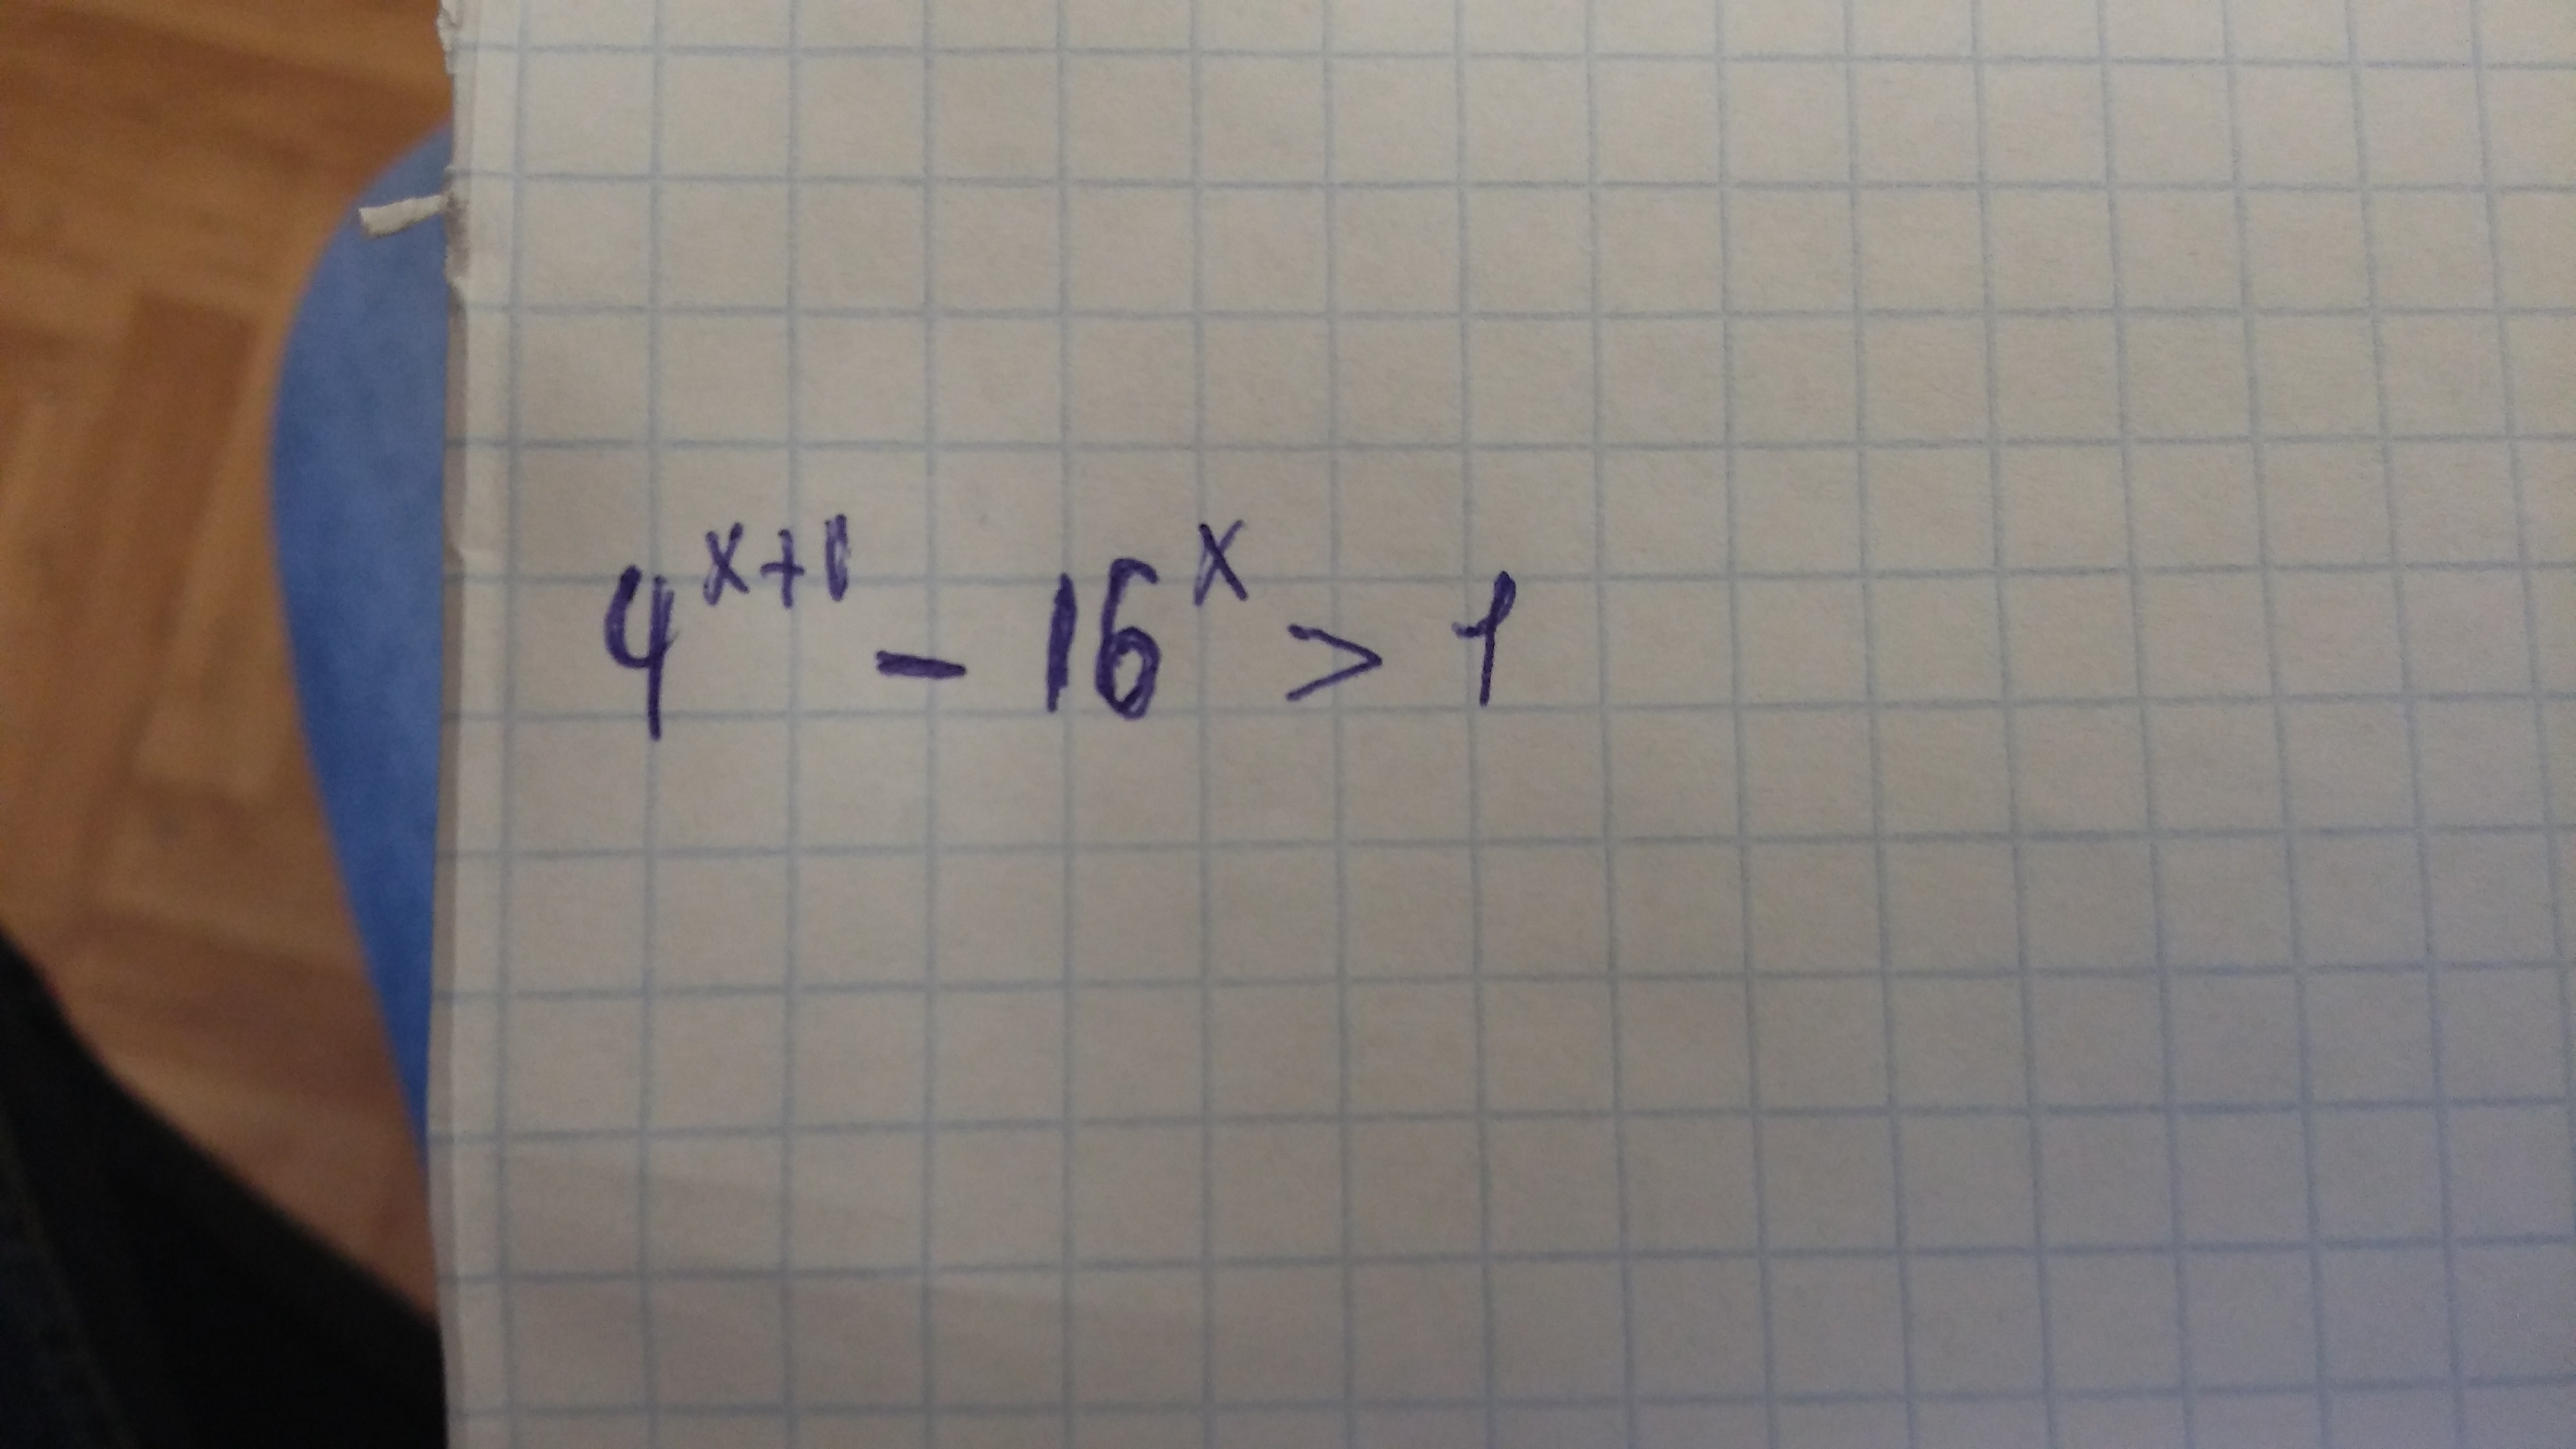 4^{x+1} - 16^{x} > 1